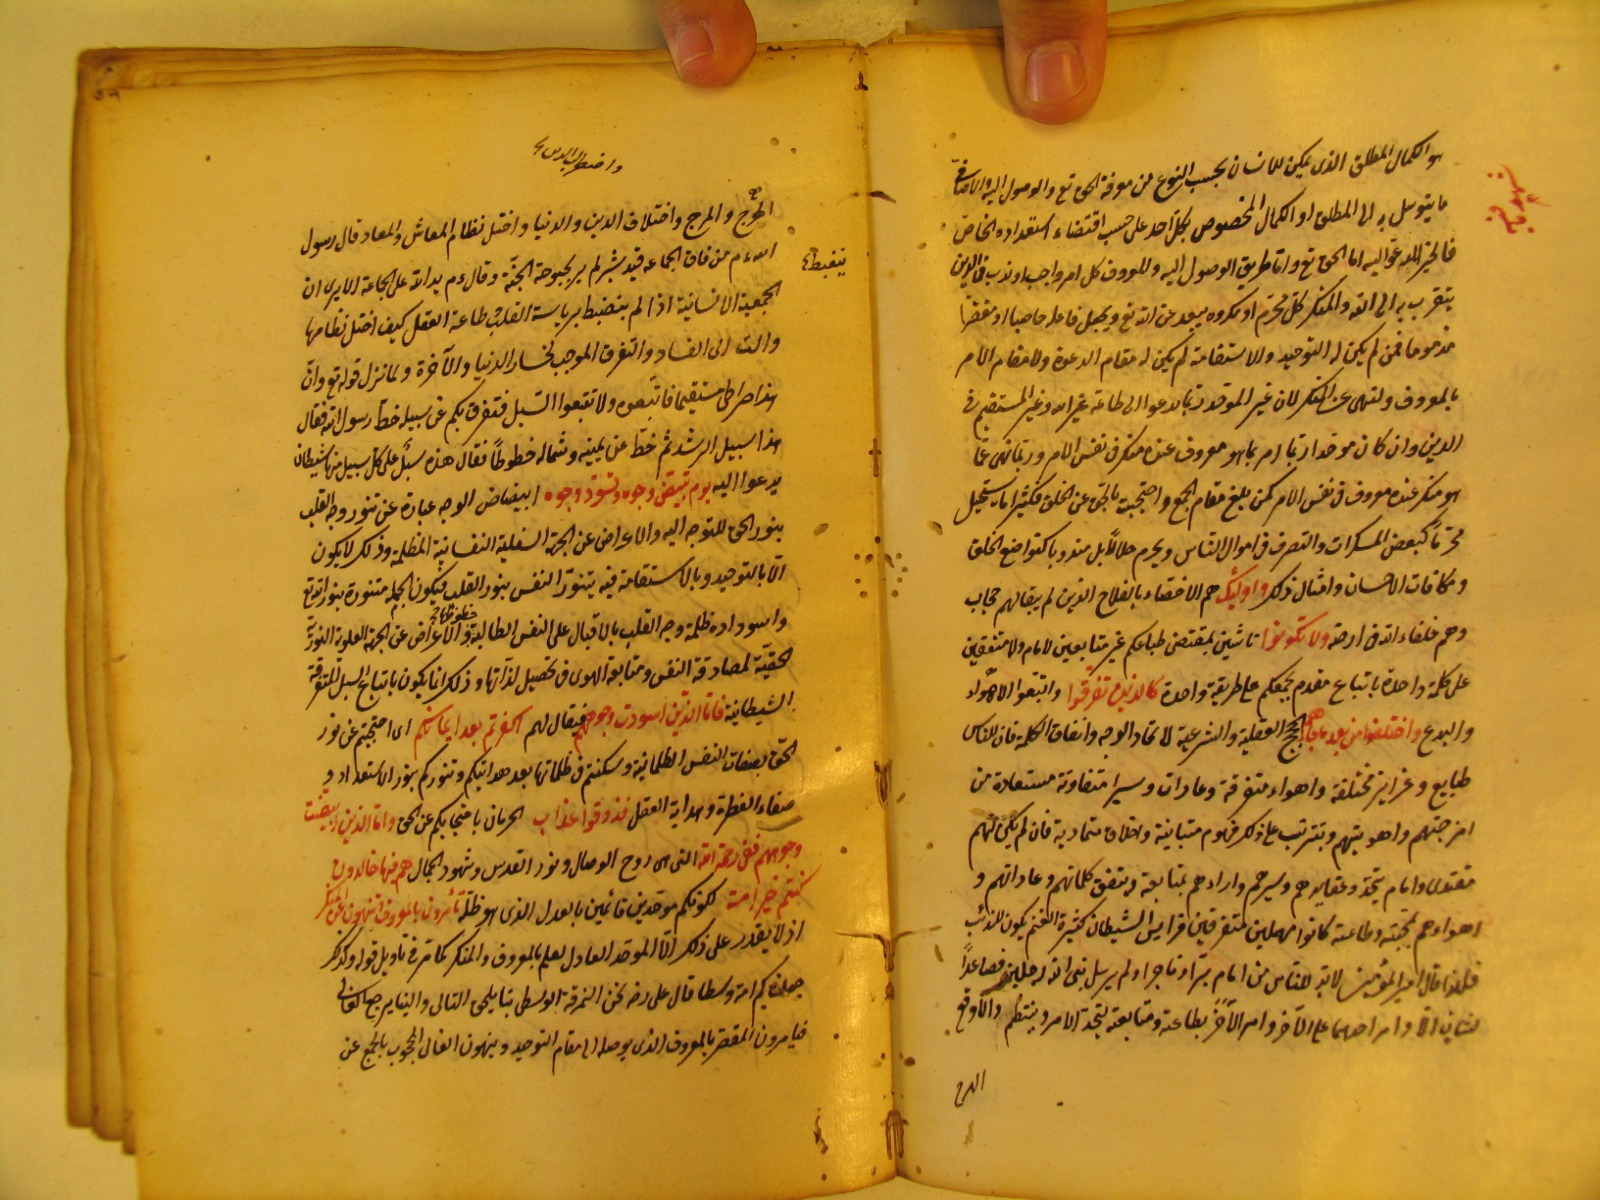 هو الكمال المطلق الذى يمكن للانسان بحسب النوع من معرفة الحق تع والوصول اليه والاضافى
ما يتوسل به الى المطلق او الكمال المخصوص بكل احد على حسب اقتضاء استعداده الخاص
فالخير المدعو اليه اما الحق تع واما طريق الوصول اليه والمعروف كل امر واجب او ندب فى الدين
يتقرب به الى الله والمنكر كل محرم او مكروه يبعد عن الله تع ويجعل فاعله عاصيا او مقصرا
مذموما فمن لم يكن له التوحيد والاستقامة لم يكن له مقام الدعوة ولا مقام الامر
بالمعروف والنهى عن المنكر لان غير الموحد ربما يدعو الى طاعة غير الله وغير المستقيم فى
الدين وان كان موحدا ربما امر بما هو معروف عنده منكر فى نفس الامر وربما نهى عما
هو منكر عنده معروف فى نفس الامر كمن بلغ مقام الجمع واحتجب بالحق عن الخلق فكثيرا ما يستحيل
محرما كبعض المسكرات والتصرف فى اموال الناس ويحرم حلالا بل مندوبا كتواضع الخلق
ومكافات الاحسان وامثال ذلك واولئك هم الاخصاء بالفلاح الذين لم يبق لهم حجاب
وهم خلفاء الله فى ارضه ولا تكونوا ناشين بمقتضى طباعكم غير متابعين لامام ولا متفقين
على كلمة واحدة باتباع مقدم يجمعكم على طريقة واحدة كالذين تفرقوا واتبعوا الاهواء
والبدع واختلفوا من بعد ما جاءهم الحجج العقلية والشرعية لاتحاد الوجه واتفاق الكلمة فان للناس
طبايع وغرايز مختلفة واهواء متفرقة وعادات وسيرا متفاوتة مستفادة من
امزجتهم واهويتهم ويترتب على ذلك فهوم متباينة واخلاق متعادية فان لم يكن لهم
مقتدى وامام يتحد عقايدهم وسيرهم واراءهم بمتابعته ويتفق كلماتهم وعاداتهم و
اهواءهم بمحبته وطاعته كانوا مهملين متفرقين فرايس الشيطان كشريدة الغنم يكون للذئب
فلهذا قال امير المؤمنين لا بد للناس من امام بر او فاجر ولم يرسل نبى الله رجلين فصاعدا
لشان الا وامر احدهما على الآخر وامر الآخر بطاعته ومتابعته ليتحد الامر وينتظم والا وقع
الهرج
واضطراب الدين
الهرج والمرج واختلاف الدين والدنيا واختل نظام المعاش والمعاد قال رسول
الله ءم من فارق الجماعة قيد شبر لم ير بحبوحة الجنة وقال ءم يد الله على الجماعة الا يرى ان
الجمعية الانسانية اذا لم ينضبط برياسة القلب طاعة العقل كيف اختل نظامها
والت الى الفساد والتفرق الموجب لخسار الدنيا والآخرة ولما نزل قوله تع وان
هذا صراطى مستقيما فاتبعوه ولا تتبعوا السبل فتفرق بكم عن سبيله خط رسول الله فقال
هذا سبيل الرشد ثم خط عن يمينه وشماله خطوطا فقال هذه سبل على كل سبيل منها شيطان
يدعوا اليه يوم تبيض وجوه وتسود وجوه ابيضاض الوجه عبارة عن تنور وجه القلب
بنور الحق للتوجه اليه والاعراض عن الجهة السفلية النفسانية المظلمة وذلك لا يكون
الا بالتوحيد وبالاستقامة فيه يتنور النفس بنور القلب فيكون الجملة متنورة بنور الله تع
واسوداده ظلمة وجه القلب بالاقبال على النفس الطالبة والاعراض عن الجهة العلوية النورية
الحقية لمصادقة النفس ومتابعة الهوى فى تحصيل لذاتها وذلك انما يكون باتباع السبل المتفرقة
الشيطانية فاما الذين اسودت وجوههم فيقال لهم اكفرتم بعد ايمانكم اى احتجبتم عن نور
الحق بصفات النفس الظلمانية وسكنتم فى ظلماتها بعد هدايتكم وتنوركم بنور الاستعداد و
صفاء الفطرة وهداية العقل فذوقوا عذاب الحرمان باحتجابكم عن الحق واما الذين ابيضت
وجوههم ففى رحمة الله التى هى روح الوصال ونور القدس وشهود الجمال هم فيها خالدون
كنتم خير امة لكونكم موحدين قائمين بالعدل الذى هو ظله تأمرون بالمعروف وتنهون عن المنكر
اذ لا يقدر على ذلك الا الموحد العادل لعلمه بالمعروف والمنكر كما مر فى تاويل قوله وكذلك
جعلناكم امة وسطا قال على رضه نحن النمرقة الوسطى بنا يلحق التالى والينا يرجع الغالى
فيامرون المقصر بالمعروف الذى يوصله الى مقام التوحيد وينهون الغالى المحجوب بالجمع عن